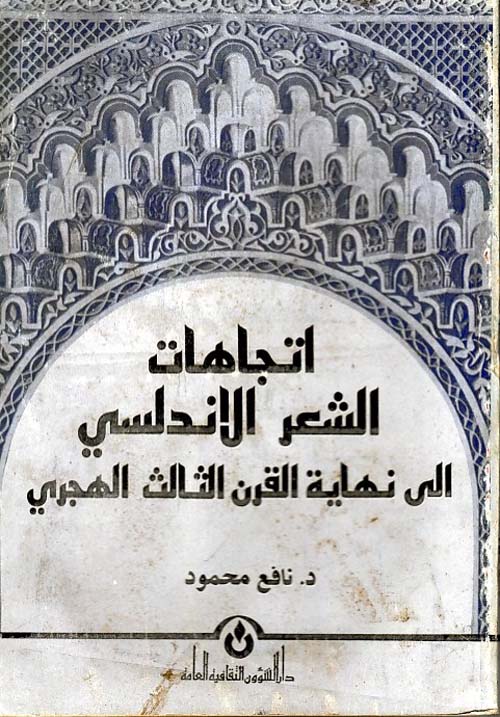 اتجاهات
الشعر الاندلسي
الى نهاية القرن الثالث الهجري
د. نافع محمود
دار الشؤون الثقافية العامة